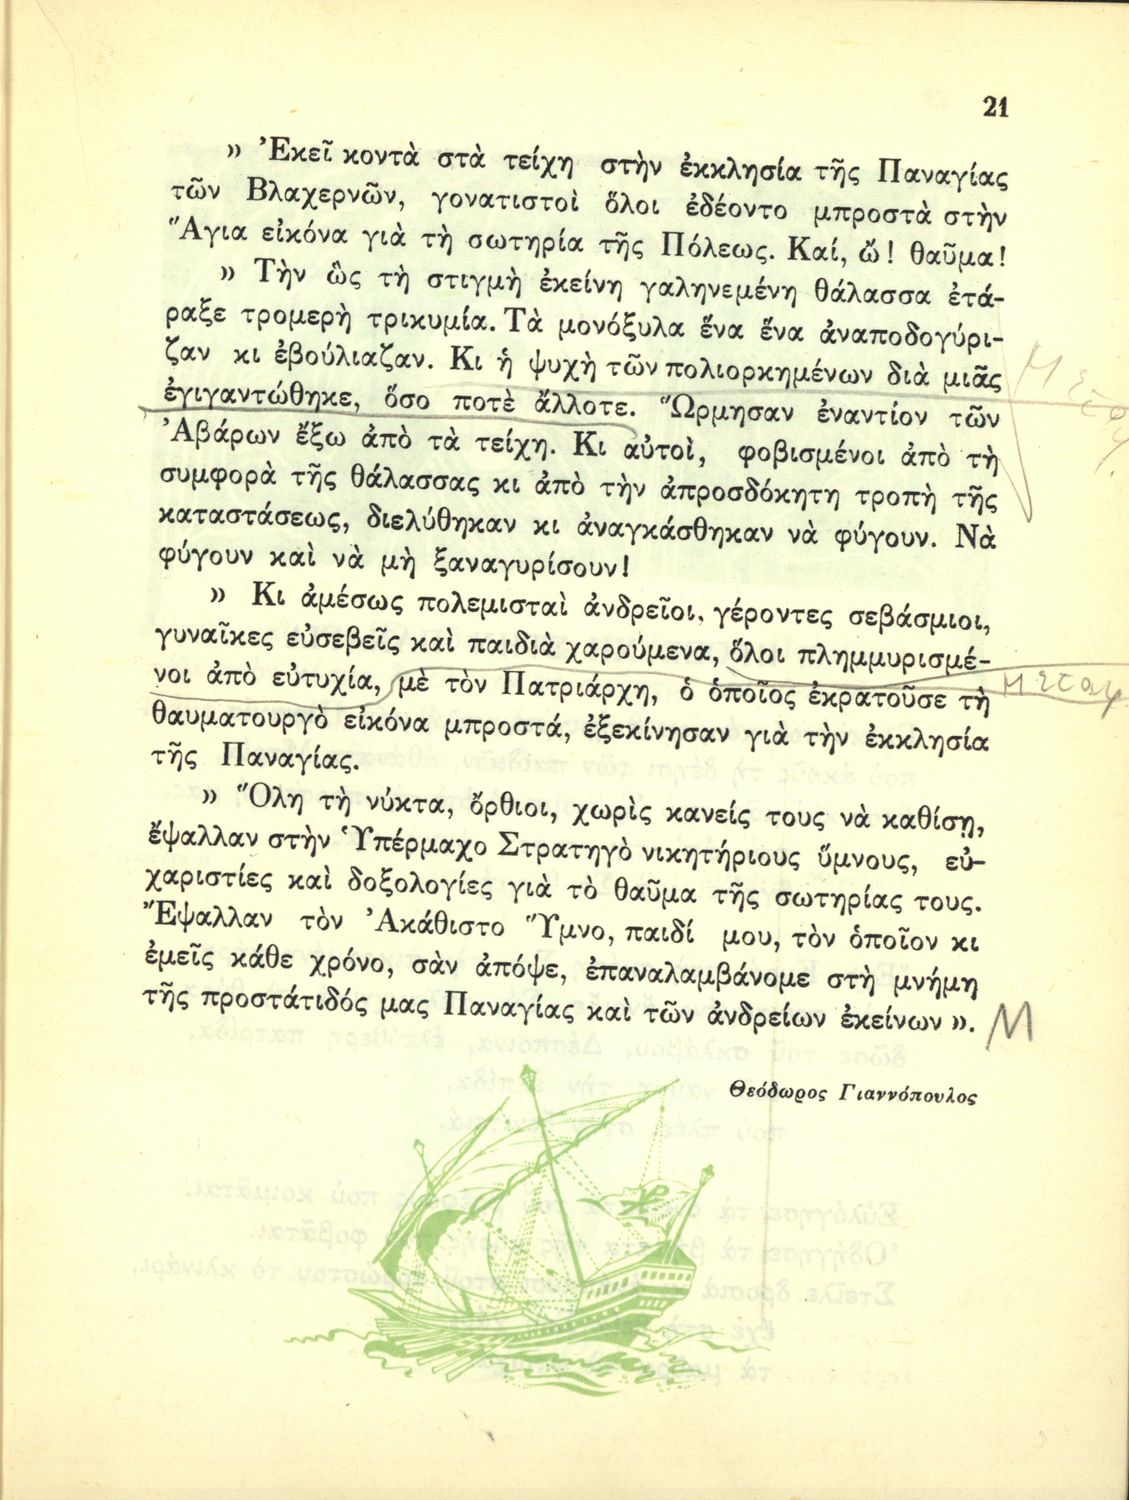 21
» Ἐκεῖ κοντὰ στὰ τείχη στὴν ἐκκλησία τῆς Παναγίας
τῶν Βλαχερνῶν, γονατιστοὶ ὅλοι ἐδέοντο μπροστὰ στὴν
Ἅγια εἰκόνα γιὰ τὴ σωτηρία τῆς Πόλεως. Καί, ὤ! θαῦμα!
» Τὴν ὣς τὴ στιγμὴ ἐκείνη γαληνεμένη θάλασσα ἐτά-
ραξε τρομερὴ τρικυμία. Τὰ μονόξυλα ἕνα ἕνα ἀναποδογύρι-
ζαν κι ἐβούλιαζαν. Κι ἡ ψυχὴ τῶν πολιορκημένων διὰ μιᾶς
ἐγιγαντώθηκε, ὅσο ποτὲ ἄλλοτε. Ὥρμησαν ἐναντίον τῶν
Ἀβάρων ἔξω ἀπὸ τὰ τείχη. Κι αὐτοὶ, φοβισμένοι ἀπὸ τὴ
συμφορὰ τῆς θάλασσας κι ἀπὸ τὴν ἀπροσδόκητη τροπὴ τῆς
καταστάσεως, διελύθηκαν κι ἀναγκάσθηκαν νὰ φύγουν. Νὰ
φύγουν καὶ νὰ μὴ ξαναγυρίσουν!
» Κι ἀμέσως πολεμισταὶ ἀνδρεῖοι, γέροντες σεβάσμιοι,
γυναῖκες εὐσεβεῖς καὶ παιδιὰ χαρούμενα, ὅλοι πλημμυρισμέ-
νοι ἀπὸ εὐτυχία, μὲ τὸν Πατριάρχη, ὁ ὁποῖος ἐκρατοῦσε τὴ
θαυματουργὸ εἰκόνα μπροστά, ἐξεκίνησαν γιὰ τὴν ἐκκλησία
τῆς Παναγίας.
» Ὅλη τὴ νύκτα, ὄρθιοι, χωρὶς κανείς τους νὰ καθίσῃ,
ἔψαλλαν στὴν Ὑπέρμαχο Στρατηγὸ νικητήριους ὕμνους, εὐ-
χαριστίες καὶ δοξολογίες γιὰ τὸ θαῦμα τῆς σωτηρίας τους.
Ἔψαλλαν τὸν Ἀκάθιστο Ὕμνο, παιδί μου, τὸν ὁποῖον κι
ἐμεῖς κάθε χρόνο, σὰν ἀπόψε, ἐπαναλαμβάνομε στὴ μνήμη
τῆς προστάτιδός μας Παναγίας καὶ τῶν ἀνδρείων ἐκείνων ». Μ
Θεόδωρος Γιαννόπουλος